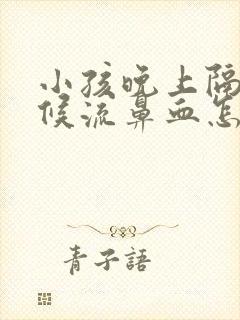 小孩晚上隔
候流鼻血怎
青子語